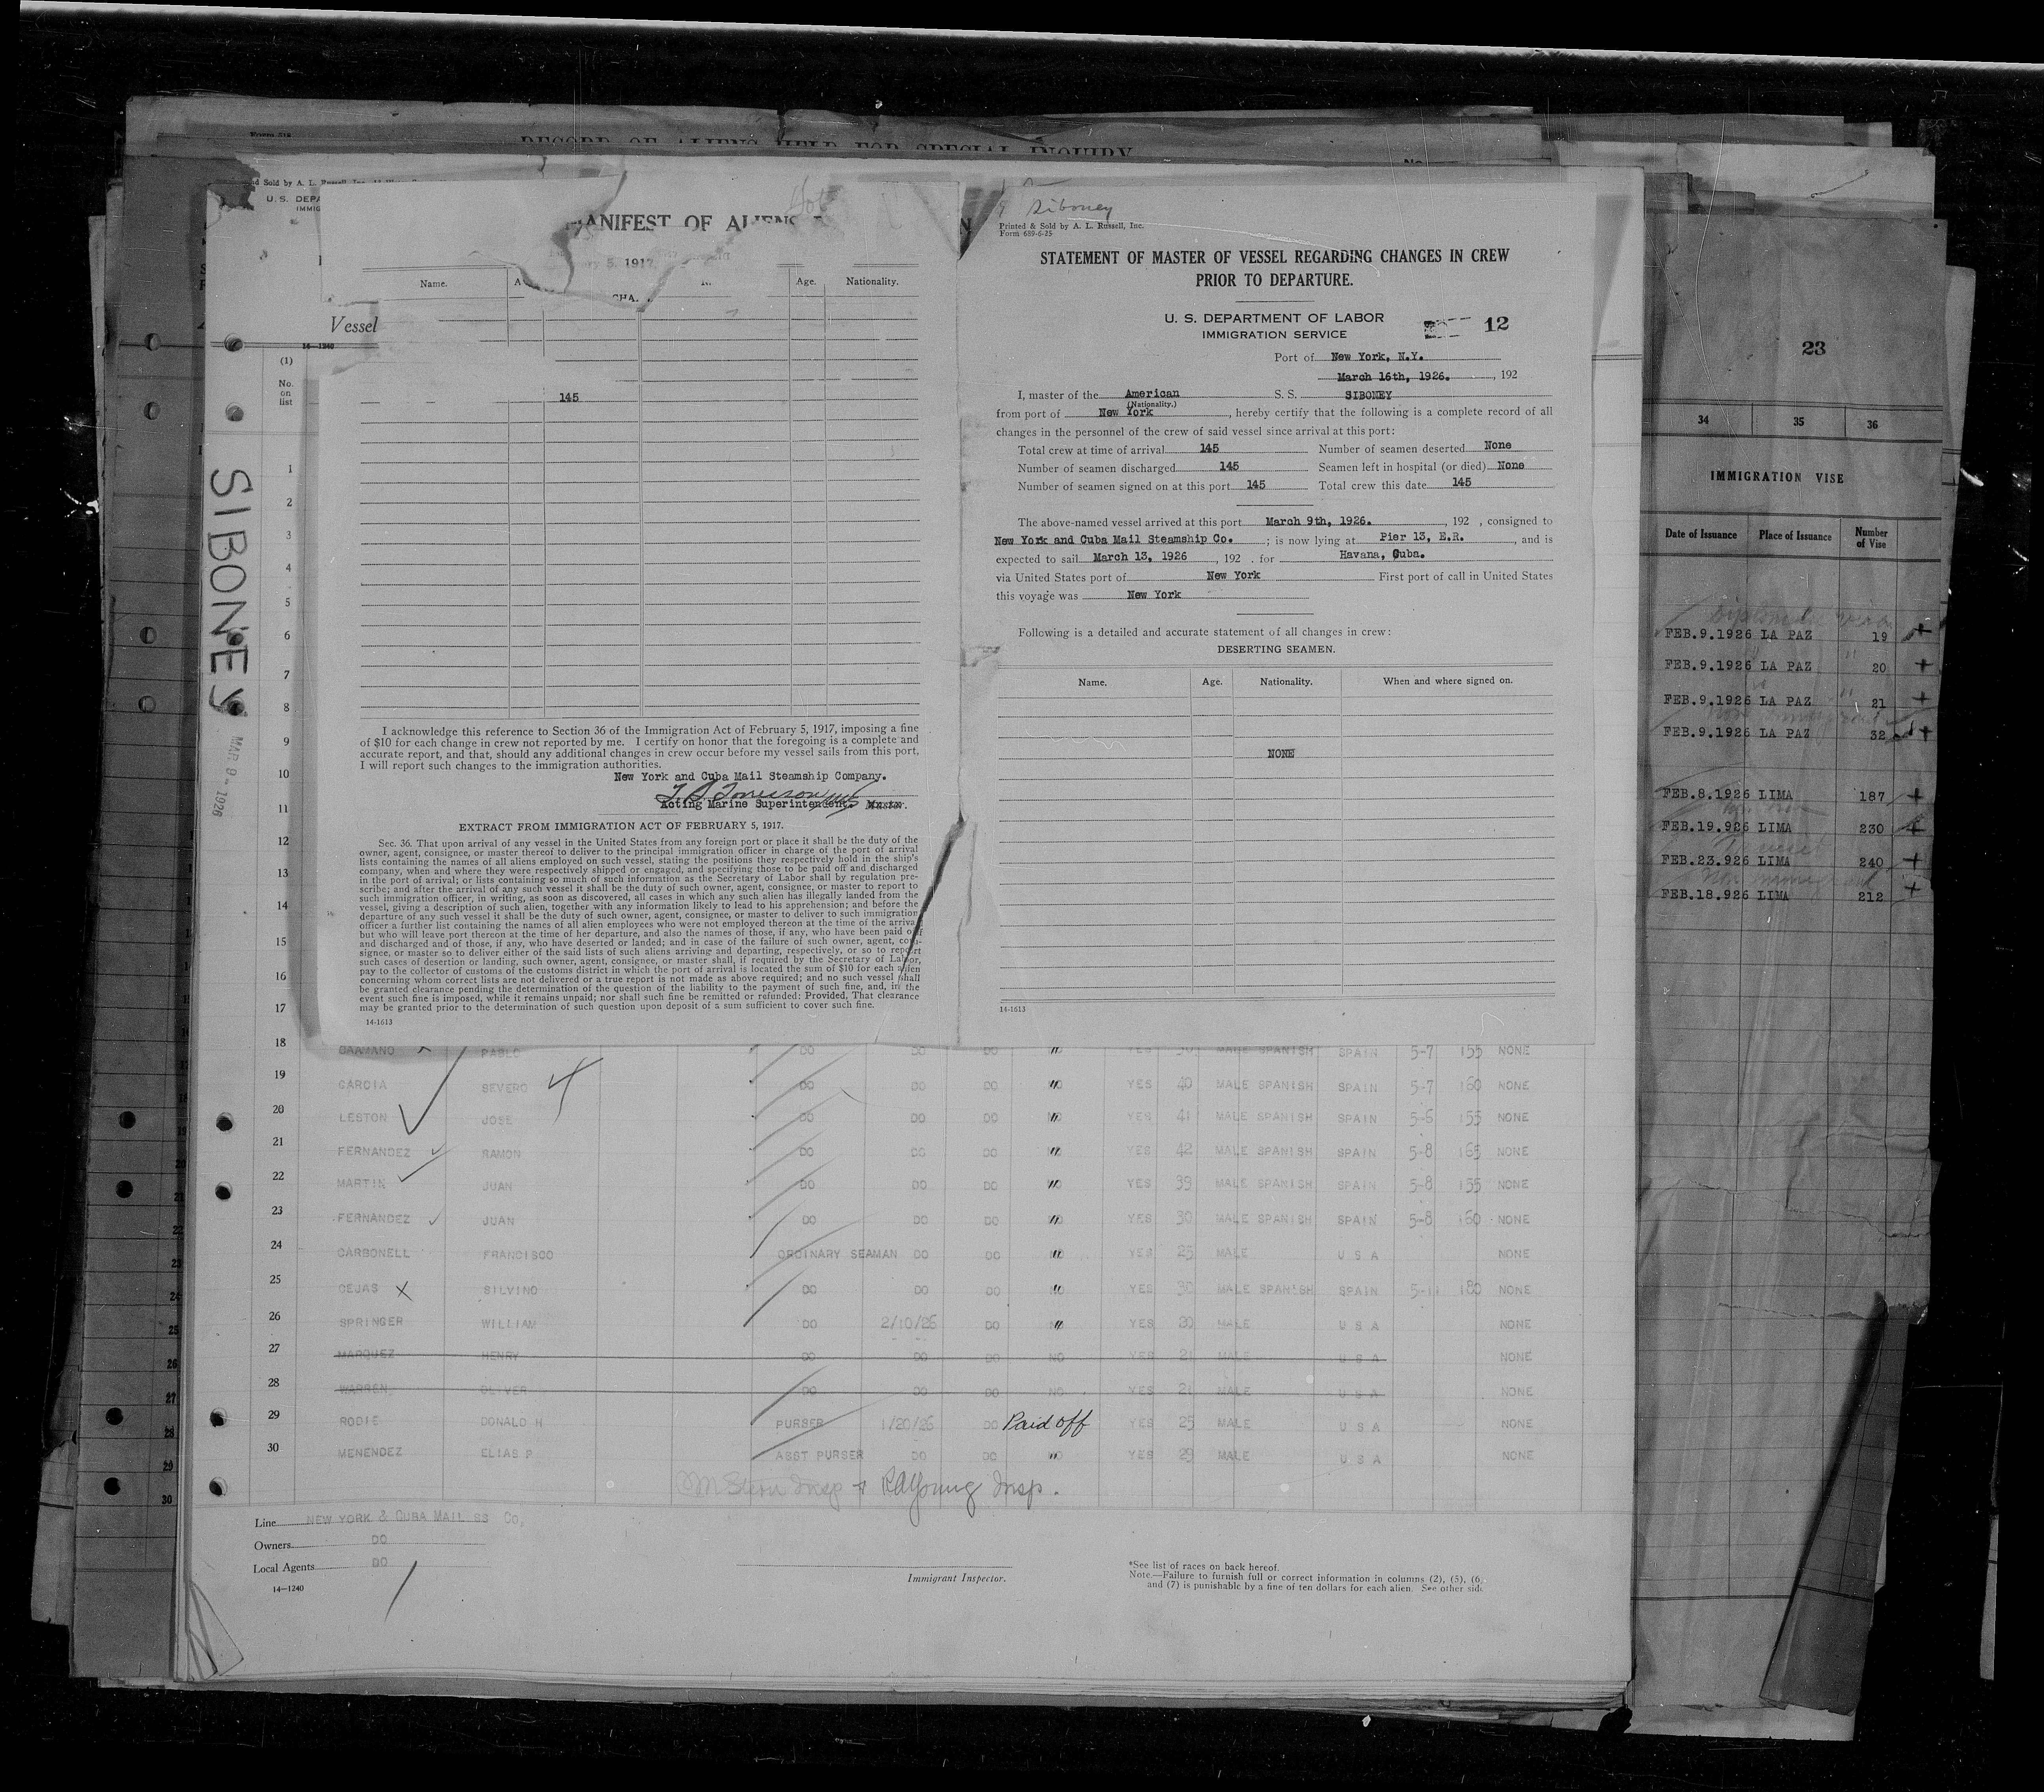 Form 518
RECORD OF ALIENS HELD FOR SPECIAL INQUIRY
No.
d Sold by A. L. Russell, Inc.
U. S. DEPA
IMMIG
MANIFEST OF ALIENS
ry 5, 1917
Name.
Age.
Nationality.
CHA
Vessel
14—1240
(1)
No.
on
list
145
SIBONEY
MAR 9 - 1926
I acknowledge this reference to Section 36 of the Immigration Act of February 5, 1917, imposing a fine
of $10 for each change in crew not reported by me. I certify on honor that the foregoing is a complete and
accurate report, and that, should any additional changes in crew occur before my vessel sails from this port,
I will report such changes to the immigration authorities.
New York and Cuba Mail Steamship Company.
Acting Marine Superintendent. Master.
EXTRACT FROM IMMIGRATION ACT OF FEBRUARY 5, 1917.
Sec. 36. That upon arrival of any vessel in the United States from any foreign port or place it shall be the duty of the
owner, agent, consignee, or master thereof to deliver to the principal immigration officer in charge of the port of arrival
lists containing the names of all aliens employed on such vessel, stating the positions they respectively hold in the ship's
company, when and where they were respectively shipped or engaged, and specifying those to be paid off and discharged
in the port of arrival; or lists containing so much of such information as the Secretary of Labor shall by regulation pre-
scribe; and after the arrival of any such vessel it shall be the duty of such owner, agent, consignee, or master to report to
such immigration officer, in writing, as soon as discovered, all cases in which any such alien has illegally landed from the
vessel, giving a description of such alien, together with any information likely to lead to his apprehension; and before the
departure of any such vessel it shall be the duty of such owner, agent, consignee, or master to deliver to such immigration
officer a further list containing the names of all alien employees who were not employed thereon at the time of the arrival
but who will leave port thereon at the time of her departure, and also the names of those, if any, who have been paid off
and discharged and of those, if any, who have deserted or landed; and in case of the failure of such owner, agent, con-
signee, or master so to deliver either of the said lists of such aliens arriving and departing, respectively, or so to report
such cases of desertion or landing, such owner, agent, consignee, or master shall, if required by the Secretary of Labor,
pay to the collector of customs of the customs district in which the port of arrival is located the sum of $10 for each alien
concerning whom correct lists are not delivered or a true report is not made as above required; and no such vessel shall
be granted clearance pending the determination of the question of the liability to the payment of such fine, and, in the
event such fine is imposed, while it remains unpaid; nor shall such fine be remitted or refunded: Provided, That clearance
may be granted prior to the determination of such question upon deposit of a sum sufficient to cover such fine.
14-1613
Siboney
Printed & Sold by A. L. Russell, Inc.
Form 689-6-25
STATEMENT OF MASTER OF VESSEL REGARDING CHANGES IN CREW
PRIOR TO DEPARTURE.
U. S. DEPARTMENT OF LABOR
IMMIGRATION SERVICE
12
Port of New York, N.Y.
March 16th, 1926. , 192
I, master of the American S. S. SIBONEY
(Nationality.)
from port of New York , hereby certify that the following is a complete record of all
changes in the personnel of the crew of said vessel since arrival at this port:
Total crew at time of arrival 145 Number of seamen deserted None
Number of seamen discharged 145 Seamen left in hospital (or died) None
Number of seamen signed on at this port 145 Total crew this date 145
The above-named vessel arrived at this port March 9th, 1926. , 192 , consigned to
New York and Cuba Mail Steamship Co. ; is now lying at Pier 13, E.R. , and is
expected to sail March 13, 1926 , 192 . for Havana, Cuba.
via United States port of New York First port of call in United States
this voyage was New York
Following is a detailed and accurate statement of all changes in crew:
DESERTING SEAMEN.
Name. Age. Nationality. When and where signed on.
NONE
14-1613
23
34 35 36
IMMIGRATION VISE
Date of Issuance Place of Issuance Number of Vise
FEB.9.1926 LA PAZ 19
FEB.9.1926 LA PAZ 20
FEB.9.1926 LA PAZ 21
FEB.9.1926 LA PAZ 32
FEB.8.1926 LIMA 187
FEB.19.926 LIMA 230
FEB.23.926 LIMA 240
FEB.18.926 LIMA 212
1
2
3
4
5
6
7
8
9
10
11
12
13
14
15
16
17
18 CAAMANO PABLO DO DO DO YES 30 MALE SPANISH SPAIN 5-7 155 NONE
19 GARCIA SEVERO DO DO DO NO YES 40 MALE SPANISH SPAIN 5-7 160 NONE
20 LESTON JOSE DO DO DO NO YES 41 MALE SPANISH SPAIN 5-6 155 NONE
21 FERNANDEZ RAMON DO DO DO NO YES 42 MALE SPANISH SPAIN 5-8 165 NONE
22 MARTIN JUAN DO DO DO NO YES 39 MALE SPANISH SPAIN 5-8 155 NONE
23 FERNANDEZ JUAN DO DO DO NO YES 30 MALE SPANISH SPAIN 5-8 160 NONE
24 CARBONELL FRANCISCO ORDINARY SEAMAN DO DO NO YES 25 MALE U S A NONE
25 CEJAS SILVINO DO DO DO NO YES 30 MALE SPANISH SPAIN 5-11 180 NONE
26 SPRINGER WILLIAM DO 2/10/26 DO YES 20 MALE U S A NONE
27 MARQUEZ HENRY DO DO DO NO YES 21 MALE U S A NONE
28 WARREN OLIVER DO DO DO NO YES 21 MALE U S A NONE
29 RODIE DONALD H PURSER 1/20/26 DO Paid off YES 25 MALE U S A NONE
30 MENENDEZ ELIAS P ASST PURSER DO DO NO YES 29 MALE U S A NONE
Insp + RAYoung Insp.
Line NEW YORK & CUBA MAIL SS Co.
Owners DO
Local Agents DO
14—1240
Immigrant Inspector.
*See list of races on back hereof.
Note.—Failure to furnish full or correct information in columns (2), (5), (6)
and (7) is punishable by a fine of ten dollars for each alien. See other side